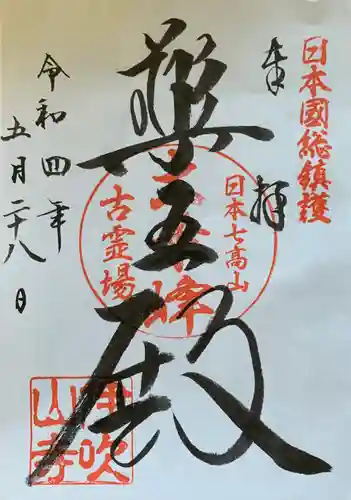 日本國総鎮護
奉拝
日本七高山
古霊場
五殿
令和四年
五月二十八日
伊吹
山寺